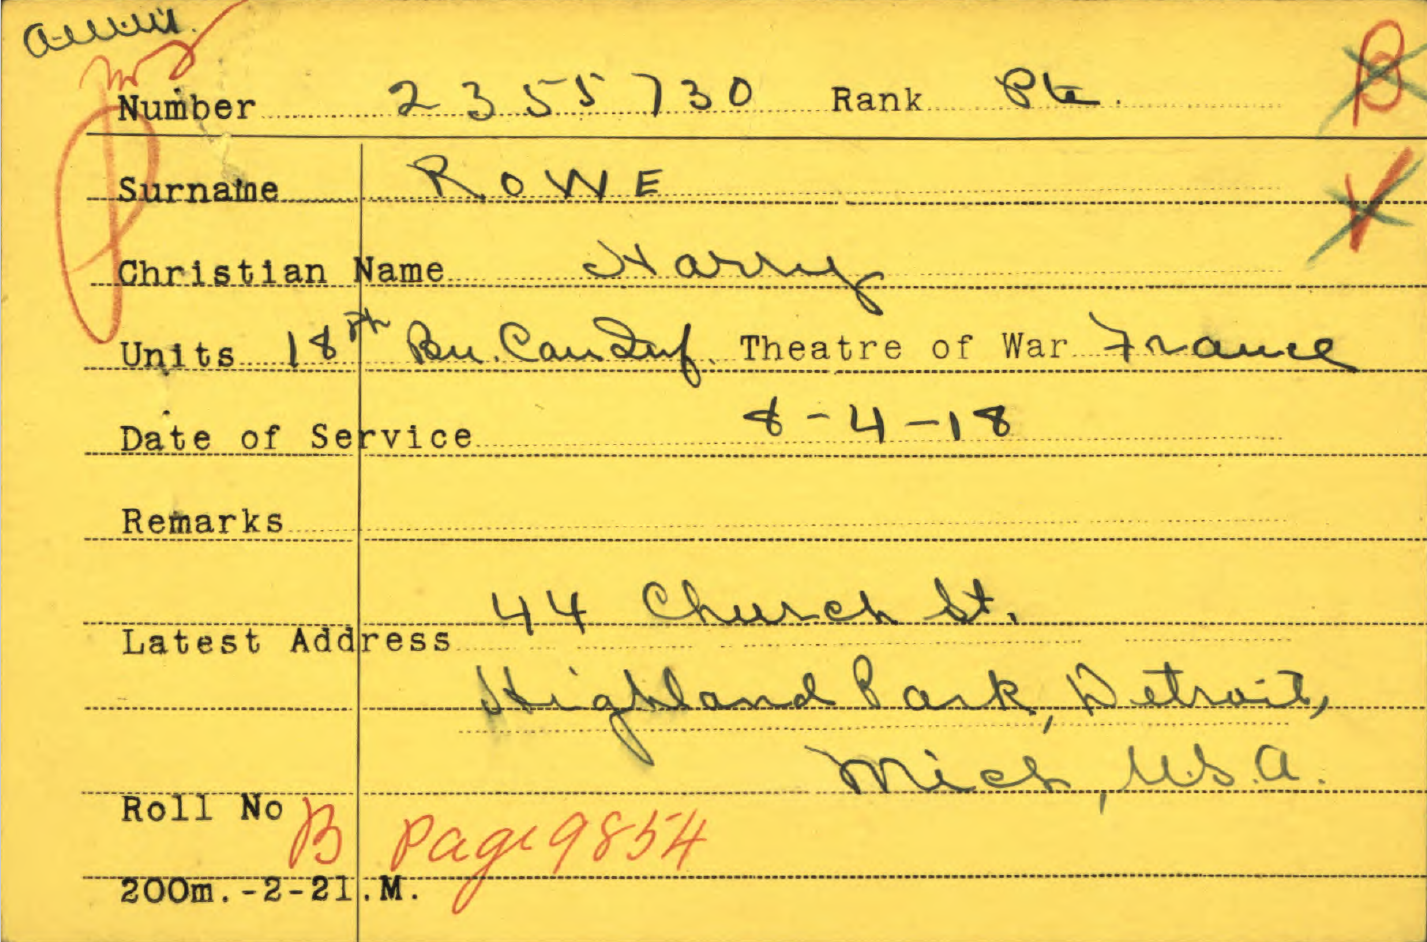 Number 2355730 Rank Pte.
Surname ROWE
Christian Name Harry
Units 18th Bn. Can Inf. Theatre of War France
Date of Service 8-4-18
Remarks
44 Church St.
Latest Address
Highland Park, Detroit,
Mich, U.S.A.
Roll No B Page 9854
200m.-2-21.M.
B
V